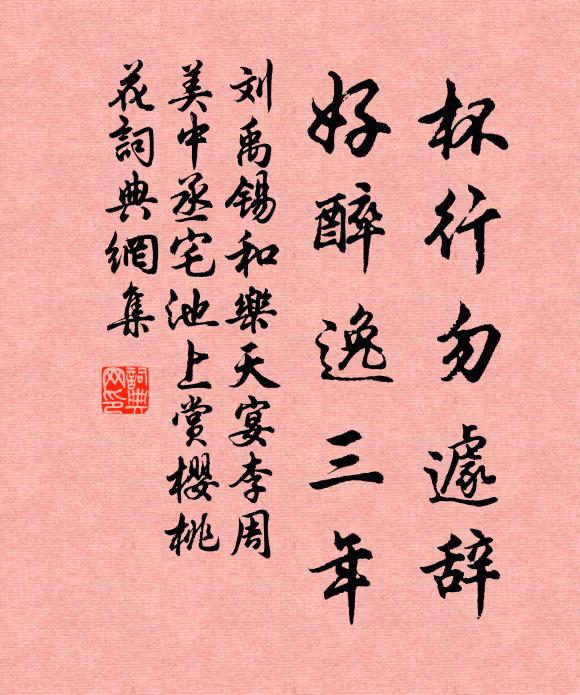 杯行勿遽辞
好醉逸三年
刘禹锡和樂天宴李周
美中丞宅池上赏櫻桃
花詞典網集
詞典網印